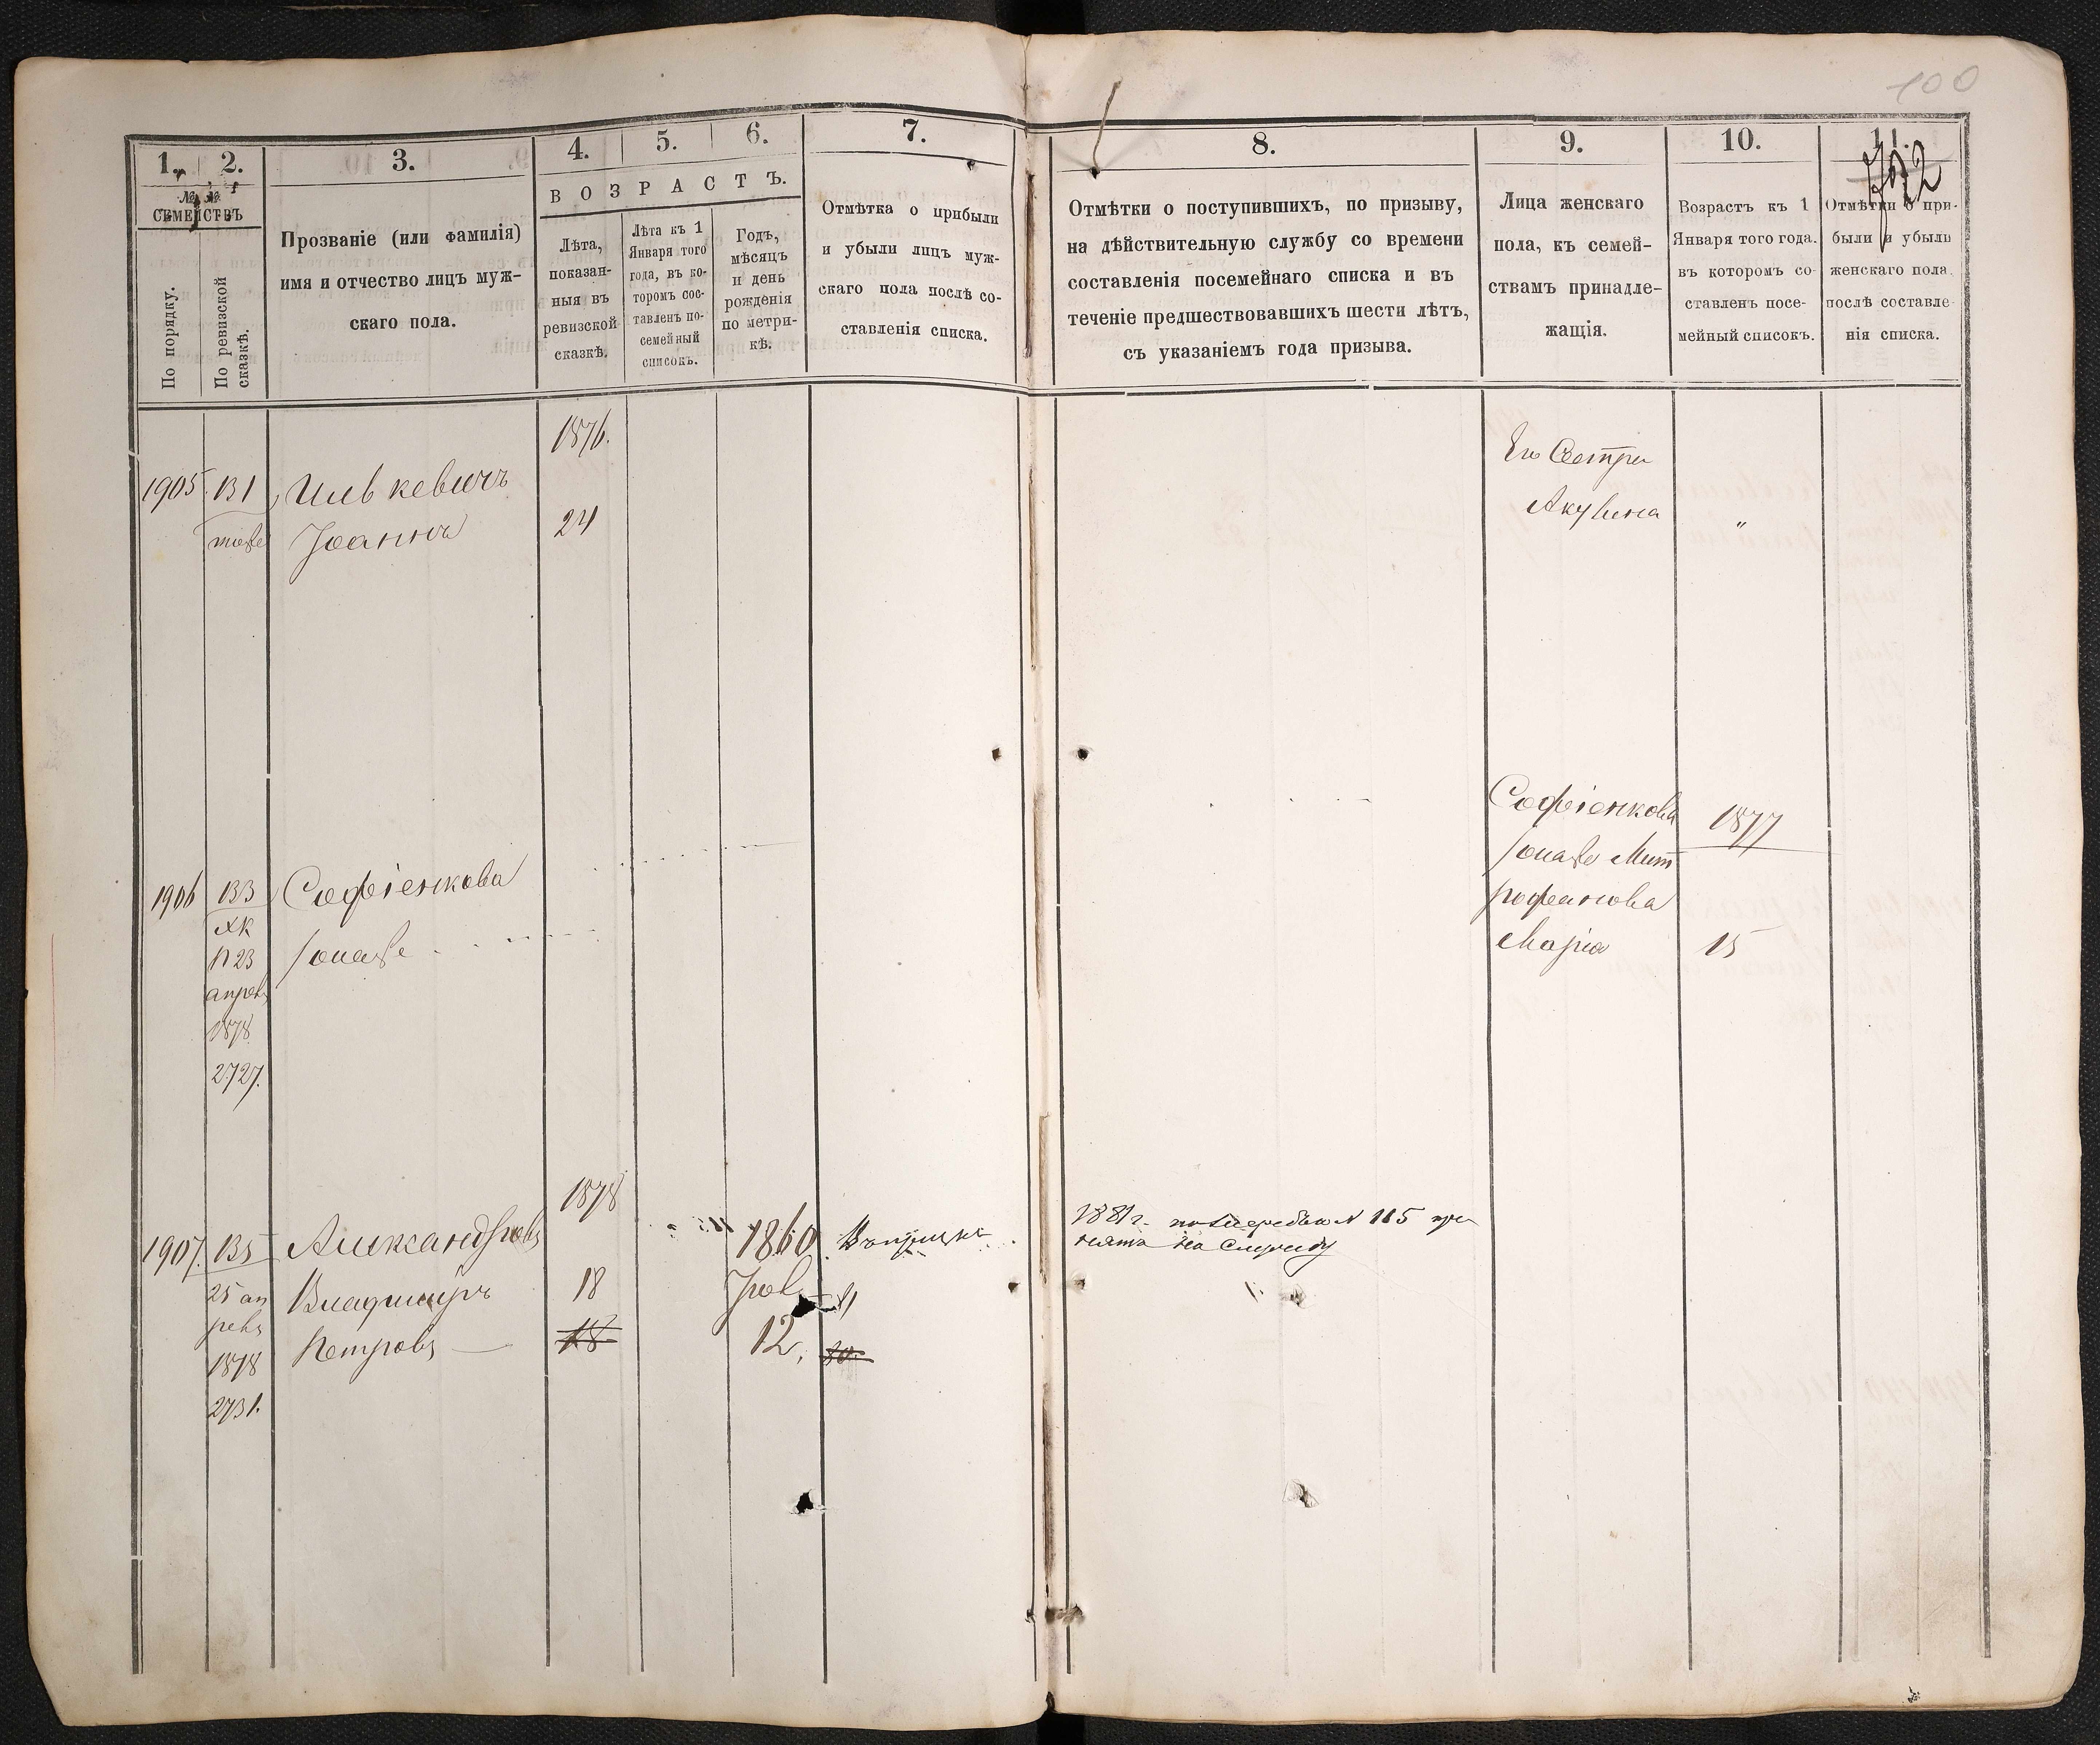 100
702
1. 2. 3. 4. 5. 6. 7. 8. 9. 10. 11.
№ №
СЕМЕЙСТВЪ
По порядку.
По ревизской
сказкѣ.
Прозваніе (или фамилія)
имя и отчество лицъ муж-
скаго пола.
ВОЗРАСТЪ.
Лѣта,
показан-
ныя въ
ревизской
сказкѣ.
Лѣта къ 1
Января того
года, въ ко-
торомъ сос-
тавленъ по-
семейный
списокъ.
Годъ,
мѣсяцъ
и день
рожденія
по метри-
кѣ.
Отмѣтка о прибыли
и убыли лицъ муж-
скаго пола послѣ со-
ставленія списка.
Отмѣтки о поступившихъ, по призыву,
на дѣйствительную службу со времени
составленія посемейнаго списка и въ
теченіе предшествовавшихъ шести лѣтъ,
съ указаніемъ года призыва.
Лица женскаго
пола, къ семей-
ствамъ принадле-
жащія.
Возрастъ къ 1
Января того года.
въ которомъ со-
ставленъ посе-
мейный списокъ.
Отмѣтки о при-
были и убыли
женскаго пола
послѣ составле-
нія списка.
1876.
1905. 131 Илькевичъ
тоже Іоаннъ 24
Его Сестра
Акулина "
1906 133 Софіенкова
№ 23
апрель
1878
2727.
Софіенкова 1877
Мит
рофанова
Марія 15
1878
1907. 135 Александровъ 1860
25 ап Владиміръ 18
рель Петровъ 18 12.
1878
2731.
81
80.
1881 г. по жеребью № 115 при
нятъ на Службу